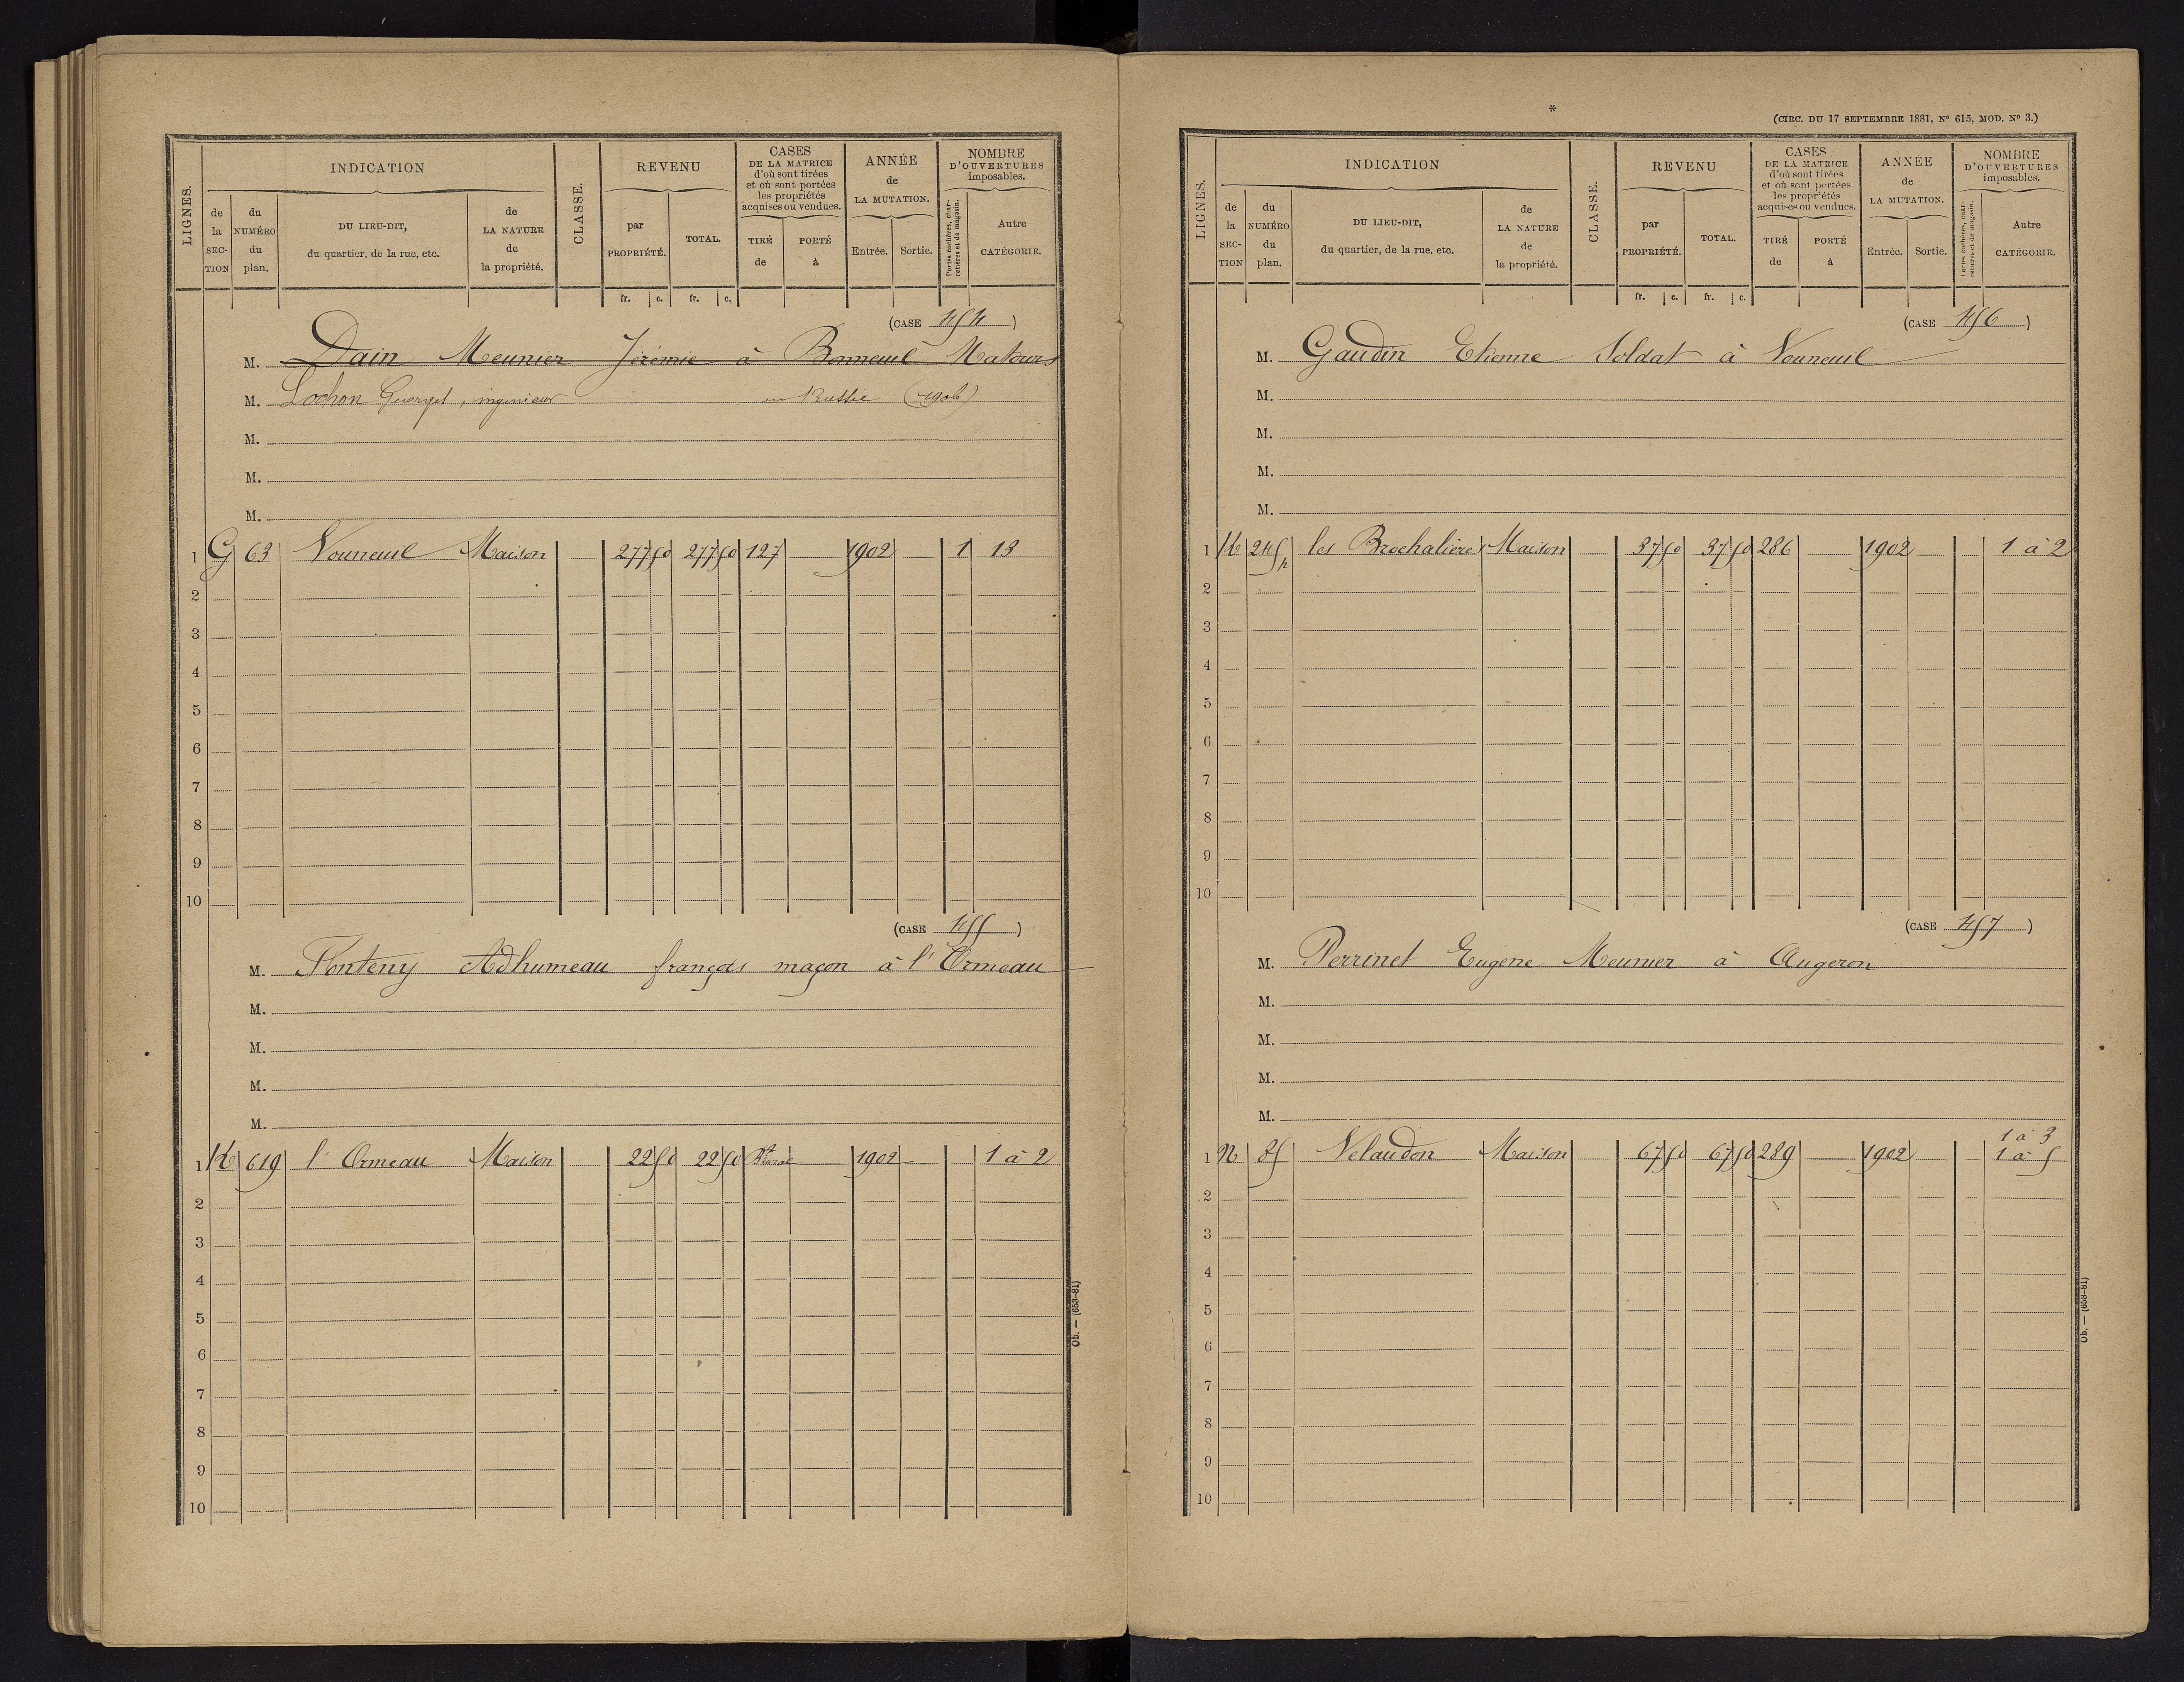 LIGNES.
INDICATION
de la SECTION
du NUMÉRO du plan.
DU LIEU-DIT, du quartier, de la rue, etc.
de LA NATURE de la propriété.
CLASSE.
REVENU
par PROPRIÉTÉ.
TOTAL.
fr. c. fr. c.
CASES DE LA MATRICE d'où sont tirées et où sont portées les propriétés acquises ou vendues.
TIRÉ de
PORTÉ à
ANNÉE de LA MUTATION.
Entrée. Sortie.
NOMBRE D'OUVERTURES imposables.
Portes cochères, charretières et de magasin.
Autre CATÉGORIE.
(CASE 454)
M. Dain Meunier Jérémie à Bonneuil Matours
M. Lochon Guerget, ingenieur en Russie (1906)
M.
M.
M.
1 G 63 Vouneuil Maison 277 50 277 50 127 1902 1 13
2
3
4
5
6
7
8
9
10
(CASE 455)
M. Fonteny Adhumeau françois maçon à l'Ormeau
M.
M.
M.
M.
1 K 619 l'Ormeau Maison 22 50 22 50 1902 1 à 2
2
3
4
5
6
7
8
9
10
Ob. — (653-81)
*
(CIRC. DU 17 SEPTEMBRE 1881, N° 615, MOD. N° 3.)
LIGNES.
INDICATION
de la SECTION
du NUMÉRO du plan.
DU LIEU-DIT, du quartier, de la rue, etc.
de LA NATURE de la propriété.
CLASSE.
REVENU
par PROPRIÉTÉ.
TOTAL.
fr. c. fr. c.
CASES DE LA MATRICE d'où sont tirées et où sont portées les propriétés acquises ou vendues.
TIRÉ de
PORTÉ à
ANNÉE de LA MUTATION.
Entrée. Sortie.
NOMBRE D'OUVERTURES imposables.
Portes cochères, charretières et de magasin.
Autre CATÉGORIE.
(CASE 456)
M. Gaudin Etienne Soldat à Vouneuil
M.
M.
M.
M.
1 K 245 les Brochalières Maison 37 50 37 50 286 1902 1 à 2
2
3
4
5
6
7
8
9
10
(CASE 457)
M. Perrinet Eugène Meunier à Augeron
M.
M.
M.
M.
1 à 3
1 N 85 Velaudon Maison 67 50 67 50 289 1902 1 à 5
2
3
4
5
6
7
8
9
10
Ob. — (653-81)